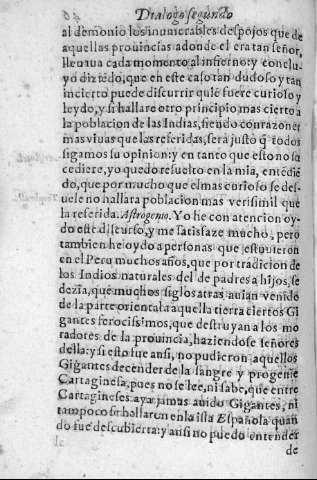 Dialogo segundo
al demonio los inumerables despojos que de
aquellas prouincias adonde el era tan señor,
lleuaua cada momento al infierno: y conclu-
yo diziẽdo, que en este caso tan dudoso y tan
incierto puede discurrir quiẽ fuere curioso y
leydo, y si hallare otro principio mas cierto a
la poblacion de las Indias, siendo con razones
mas viuas que las referidas, sera justo q̃ todos
sigamos su opinion: y en tanto que esto no su
cediere, yo quedo resuelto en la mia, entediẽ
do, que por mucho que el mas curioso se des-
uele no hallara poblacion mas verisimil que
la referida. Astrogenio. Yo he con atencion oy-
do este discurso, y me satisfaze mucho, pero
tambien he oydo a personas que estuuieron
en el Peru muchos años, que por tradicion de
los Indios naturales del de padres a hijos, se
dezia, que muchos siglos atras auian venido
de la parte oriental a aquella tierra ciertos Gi
gantes ferocissimos, que destruyan a los mo
radores de la prouincia, haziendose señores
della: y si esto fue ansi, no pudieron aquellos
Gigantes decender de la sangre y progenie
Cartaginesa, pues no se lee, ni sabe, que entre
Cartagineses aya jamas auido Gigantes, ni
tampoco se hallaron en la isla Española quan
do fue descubierta: y ansi no puedo entender
de